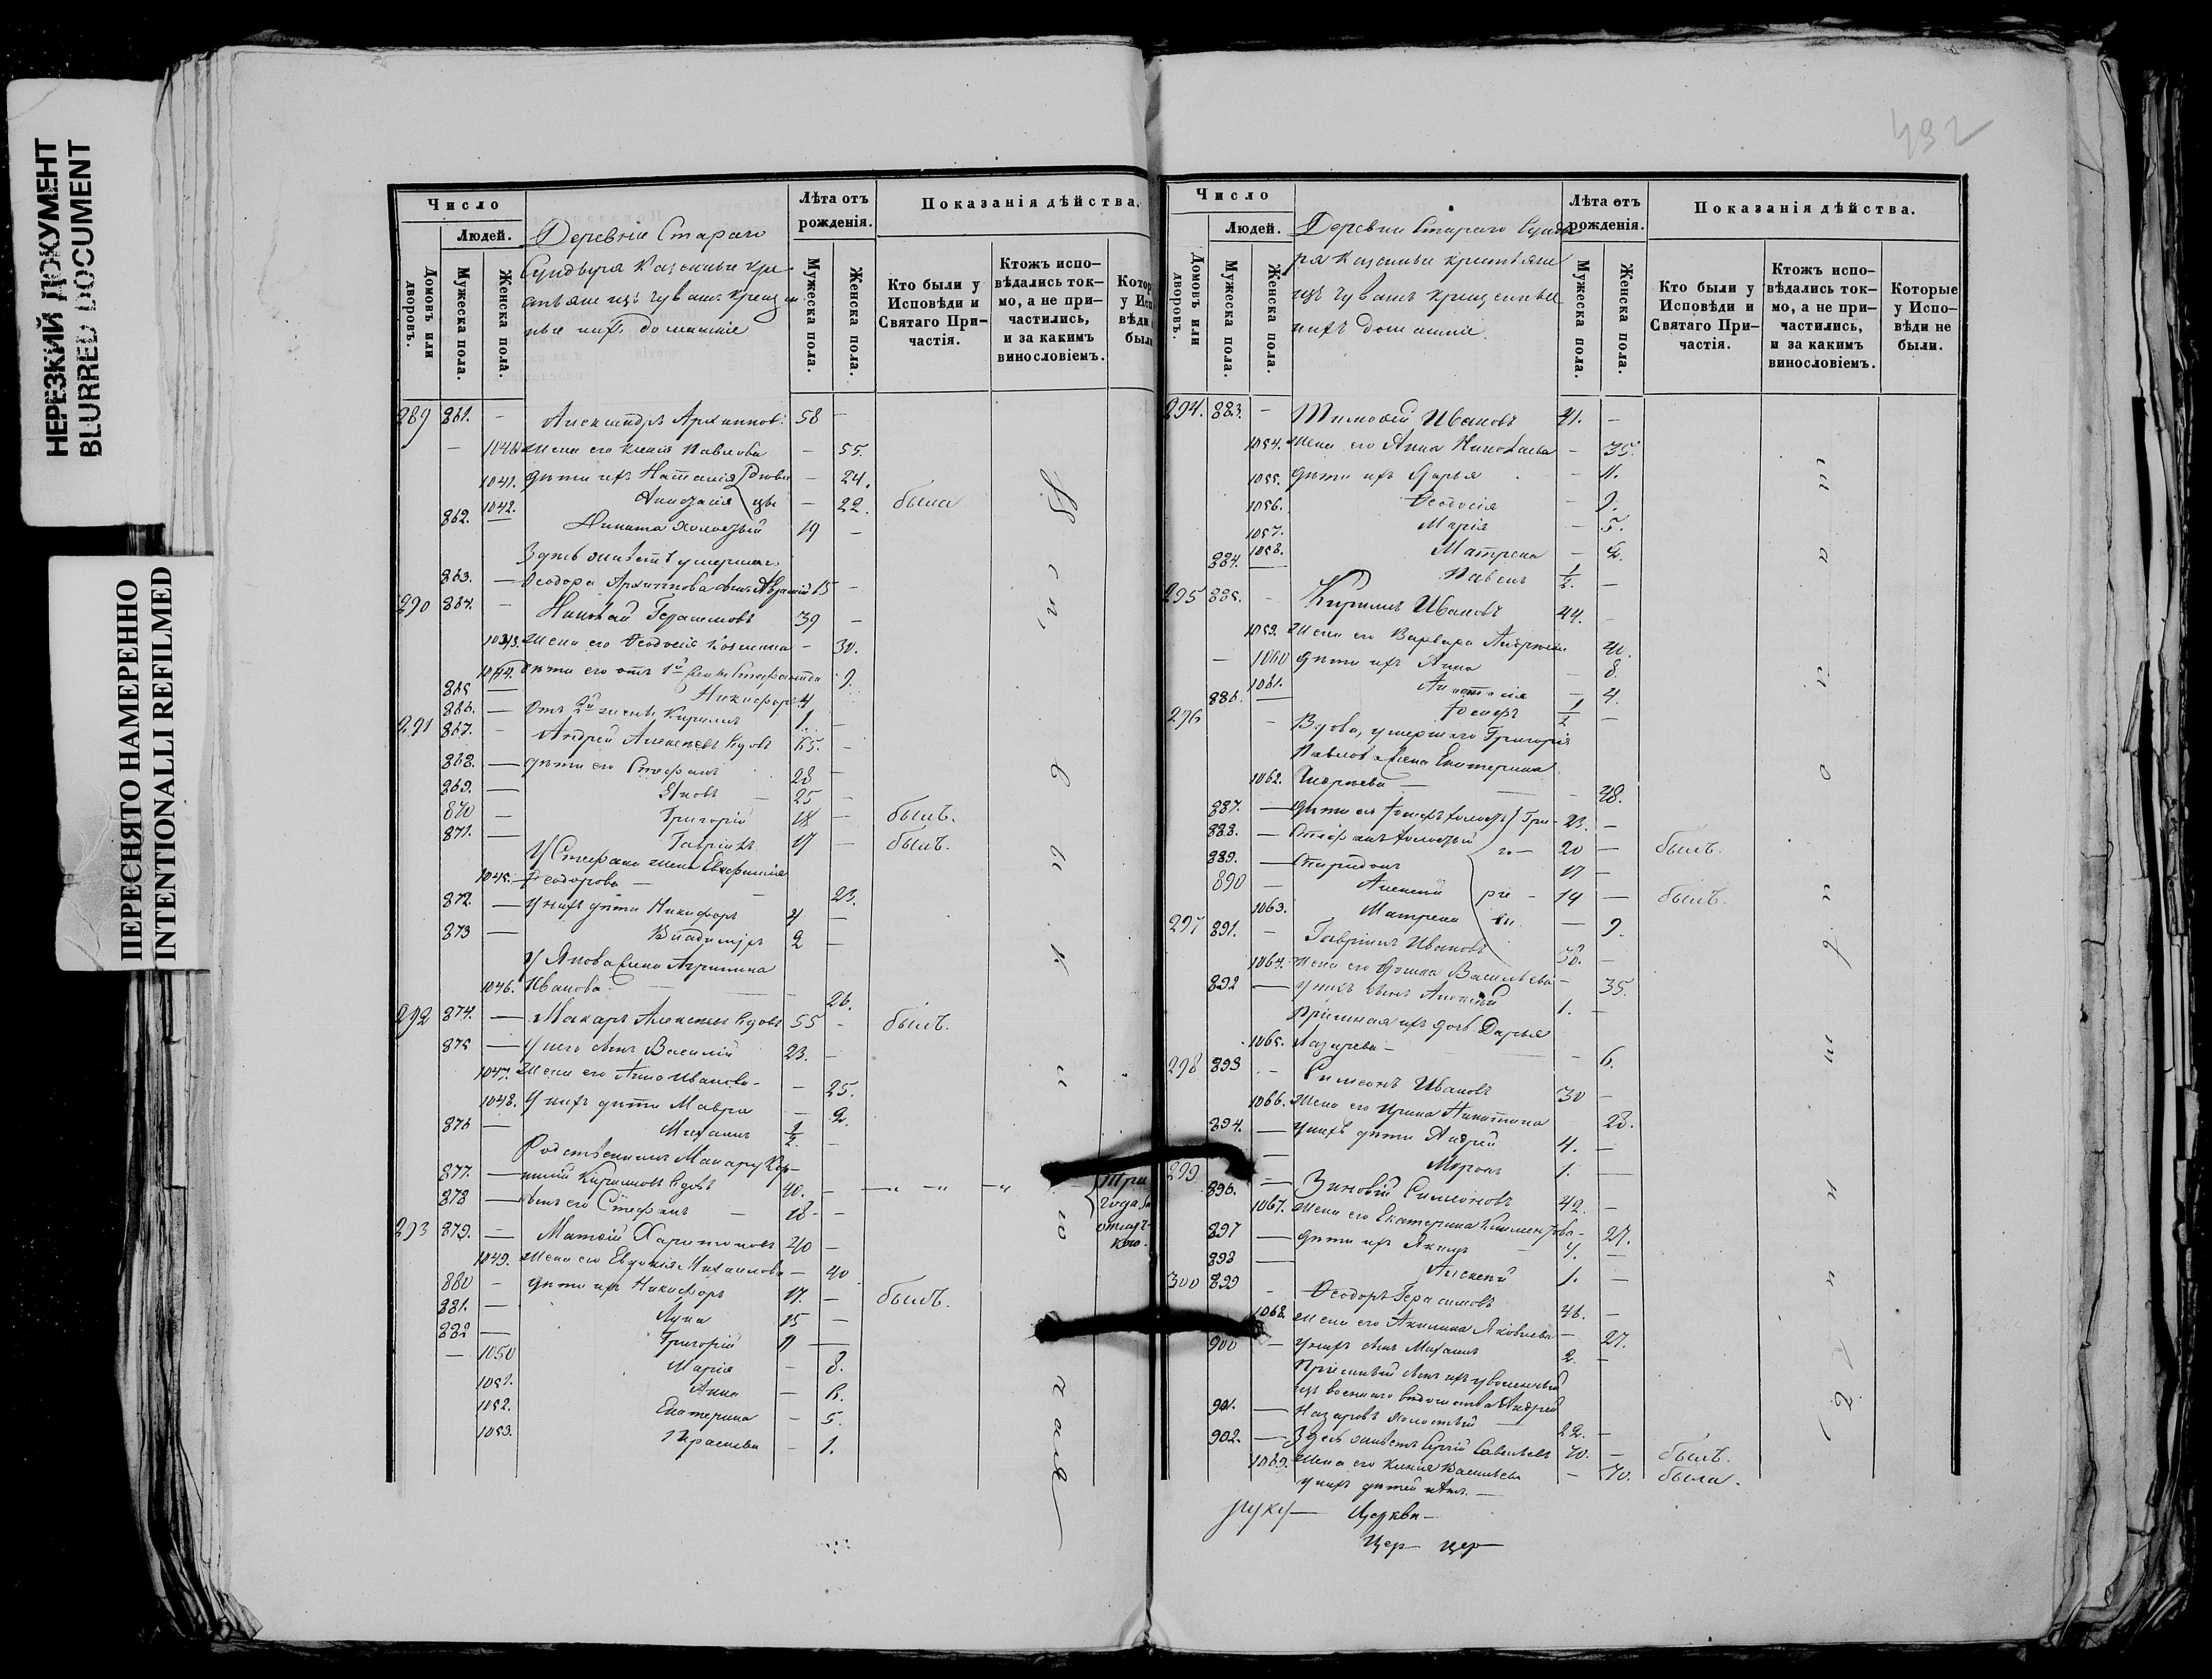 НЕРЕЗКИЙ ДОКУМЕНТ
BLURRED DOCUMENT
ПЕРЕСНЯТО НАМЕРЕННО
INTENTIONALLI REFILMED
Число
Людей.
Домовъ или дворовъ.
Мужеска пола.
Женска пола.
Деревніи Стараго
Сундыря Казенные кре
стьяне изъ чувашъ крещен
ные ихъ домашніе
Лѣта отъ рожденія.
Мужеска пола.
Женска пола.
Показанія дѣйства.
Кто были у Исповѣди и Святаго Причастія.
Ктожъ исповѣдались токмо, а не причастились, и за какимъ винословіемъ.
289 861. - Александръ Архиповъ 58 -
- 1040 жена его Ксенія Павлова - 55.
1041. дѣти ихъ Наталія - 24.
1042. Анастасія - 22. была
862. — Никита холостый 19 -
Здѣсь живетъ умершаго
863. — Ѳеодора Архипова сынъ 15 -
290 864. - Николай Герасимовъ 39 -
1043. жена его Ѳеодосія Козмина - 30.
1044. дѣти его отъ 1й жены Стефанида 9.
865 — Никифоръ 4
866. — отъ 2й жены Кириллъ 1. -
291 867. - Андрей Алексѣевъ вдовъ 65. -
868. — дѣти его Стефанъ 28 -
869. — Яковъ 25 -
870 — Григорій 18 — былъ.
871. — Гавріилъ 17 — былъ.
У Стефана жена Евфросинія
1045. Ѳеодорова — - 23.
872. — У нихъ дѣти Никифоръ 4 —
873 — Владиміръ 2 —
У Якова жена Агрипина
1046. Иванова - 26.
292 874. — Макаръ Алексѣевъ вдовъ 55 - былъ.
875 — У него сынъ Василій 23. -
1047. жена его Анна Иванова - - 25.
1048. У нихъ дѣти Мавра - 2.
876 — Михаилъ 1/2. -
Родственникъ Макару
877. — Кириловъ вдовъ 40. -
878 — сынъ его Стефанъ — 18 - -
Три года за
293 879. — Матѳій Харитоновъ 40 -
1049. жена его Евдокія Михайлова - 40
880 - дѣти ихъ Никифоръ 17. - былъ.
881. — Лука 15 -
882 — Григорій 11 —
- 1050 Марія - 8.
1051. Анна - 6.
1052. Екатерина - 5.
1053. Параскева - 1.
432
Число
Людей.
Домовъ или дворовъ.
Мужеска пола.
Женска пола.
Деревни Стараго Сунды
ря казенные крестьяне
изъ чувашъ крещенные
ихъ домашніе.
Лѣта отъ рожденія.
Мужеска пола.
Женска пола.
Показанія дѣйства.
Кто были у Исповѣди и Святаго Причастія.
Ктожъ исповѣдались токмо, а не причастились, и за какимъ винословіемъ.
Которые у Исповѣди не были.
294. 883. - Тимоѳей Ивановъ 41. -
1054. жена его Анна Николаева - 35.
1055. дѣти ихъ Дарья - 11.
1056. Ѳеодосія - 9.
1057. Марія - 5.
1058. Матрена - 2.
884. — Павелъ 1/2. -
295 885. - Кириллъ Ивановъ 44. -
1059. жена его Варвара Андреева 40.
- 1060 дѣти ихъ Анна 8.
1061. Анастасія - 4.
886. — 1/2 —
296 - Вдова, умершаго Григорія
Павлова жена Екатерина
1062. Андреева — - 48.
887. — дѣти ея 23. -
888. — Стефанъ холостый 20 — былъ.
889. — Спиридонъ 17 -
890 — Алексѣй 14 — былъ.
1063. Матрена — 9.
297 891. - Гавріилъ Ивановъ 38. -
1064. жена его Васильева - 35.
892 — у нихъ сынъ Алексѣй 1. -
Пріемная ихъ дочь Дарья
1065. Лазарева — - 6.
298 893 - Симеонъ Ивановъ 30 -
1066. жена его Ирина Никитина 28.
894. — у нихъ дѣти Андрей 4. -
— Миронъ 1. —
299 896. — Зиновій Симеоновъ 42. -
1067. жена его Екатерина Климентова - 27.
897 — дѣти ихъ Якимъ 4. —
898 — Алексѣй 1. -
300 899 - Ѳеодоръ Герасимовъ 46. -
1068. жена его Акилина Яковлева - 27.
900 — у нихъ сынъ Михаилъ 2. -
Пріемный сынъ ихъ уволенный
изъ военнаго вѣдомства Андрей
901. — Назаровъ холостый 22. -
902. — Здѣсь живетъ Сергій Савельевъ 70. - былъ.
1069. жена его Ксенія Васильева - 70. была.
у нихъ дѣтей нѣтъ. —
руку — Церкви —
Цер — цер —